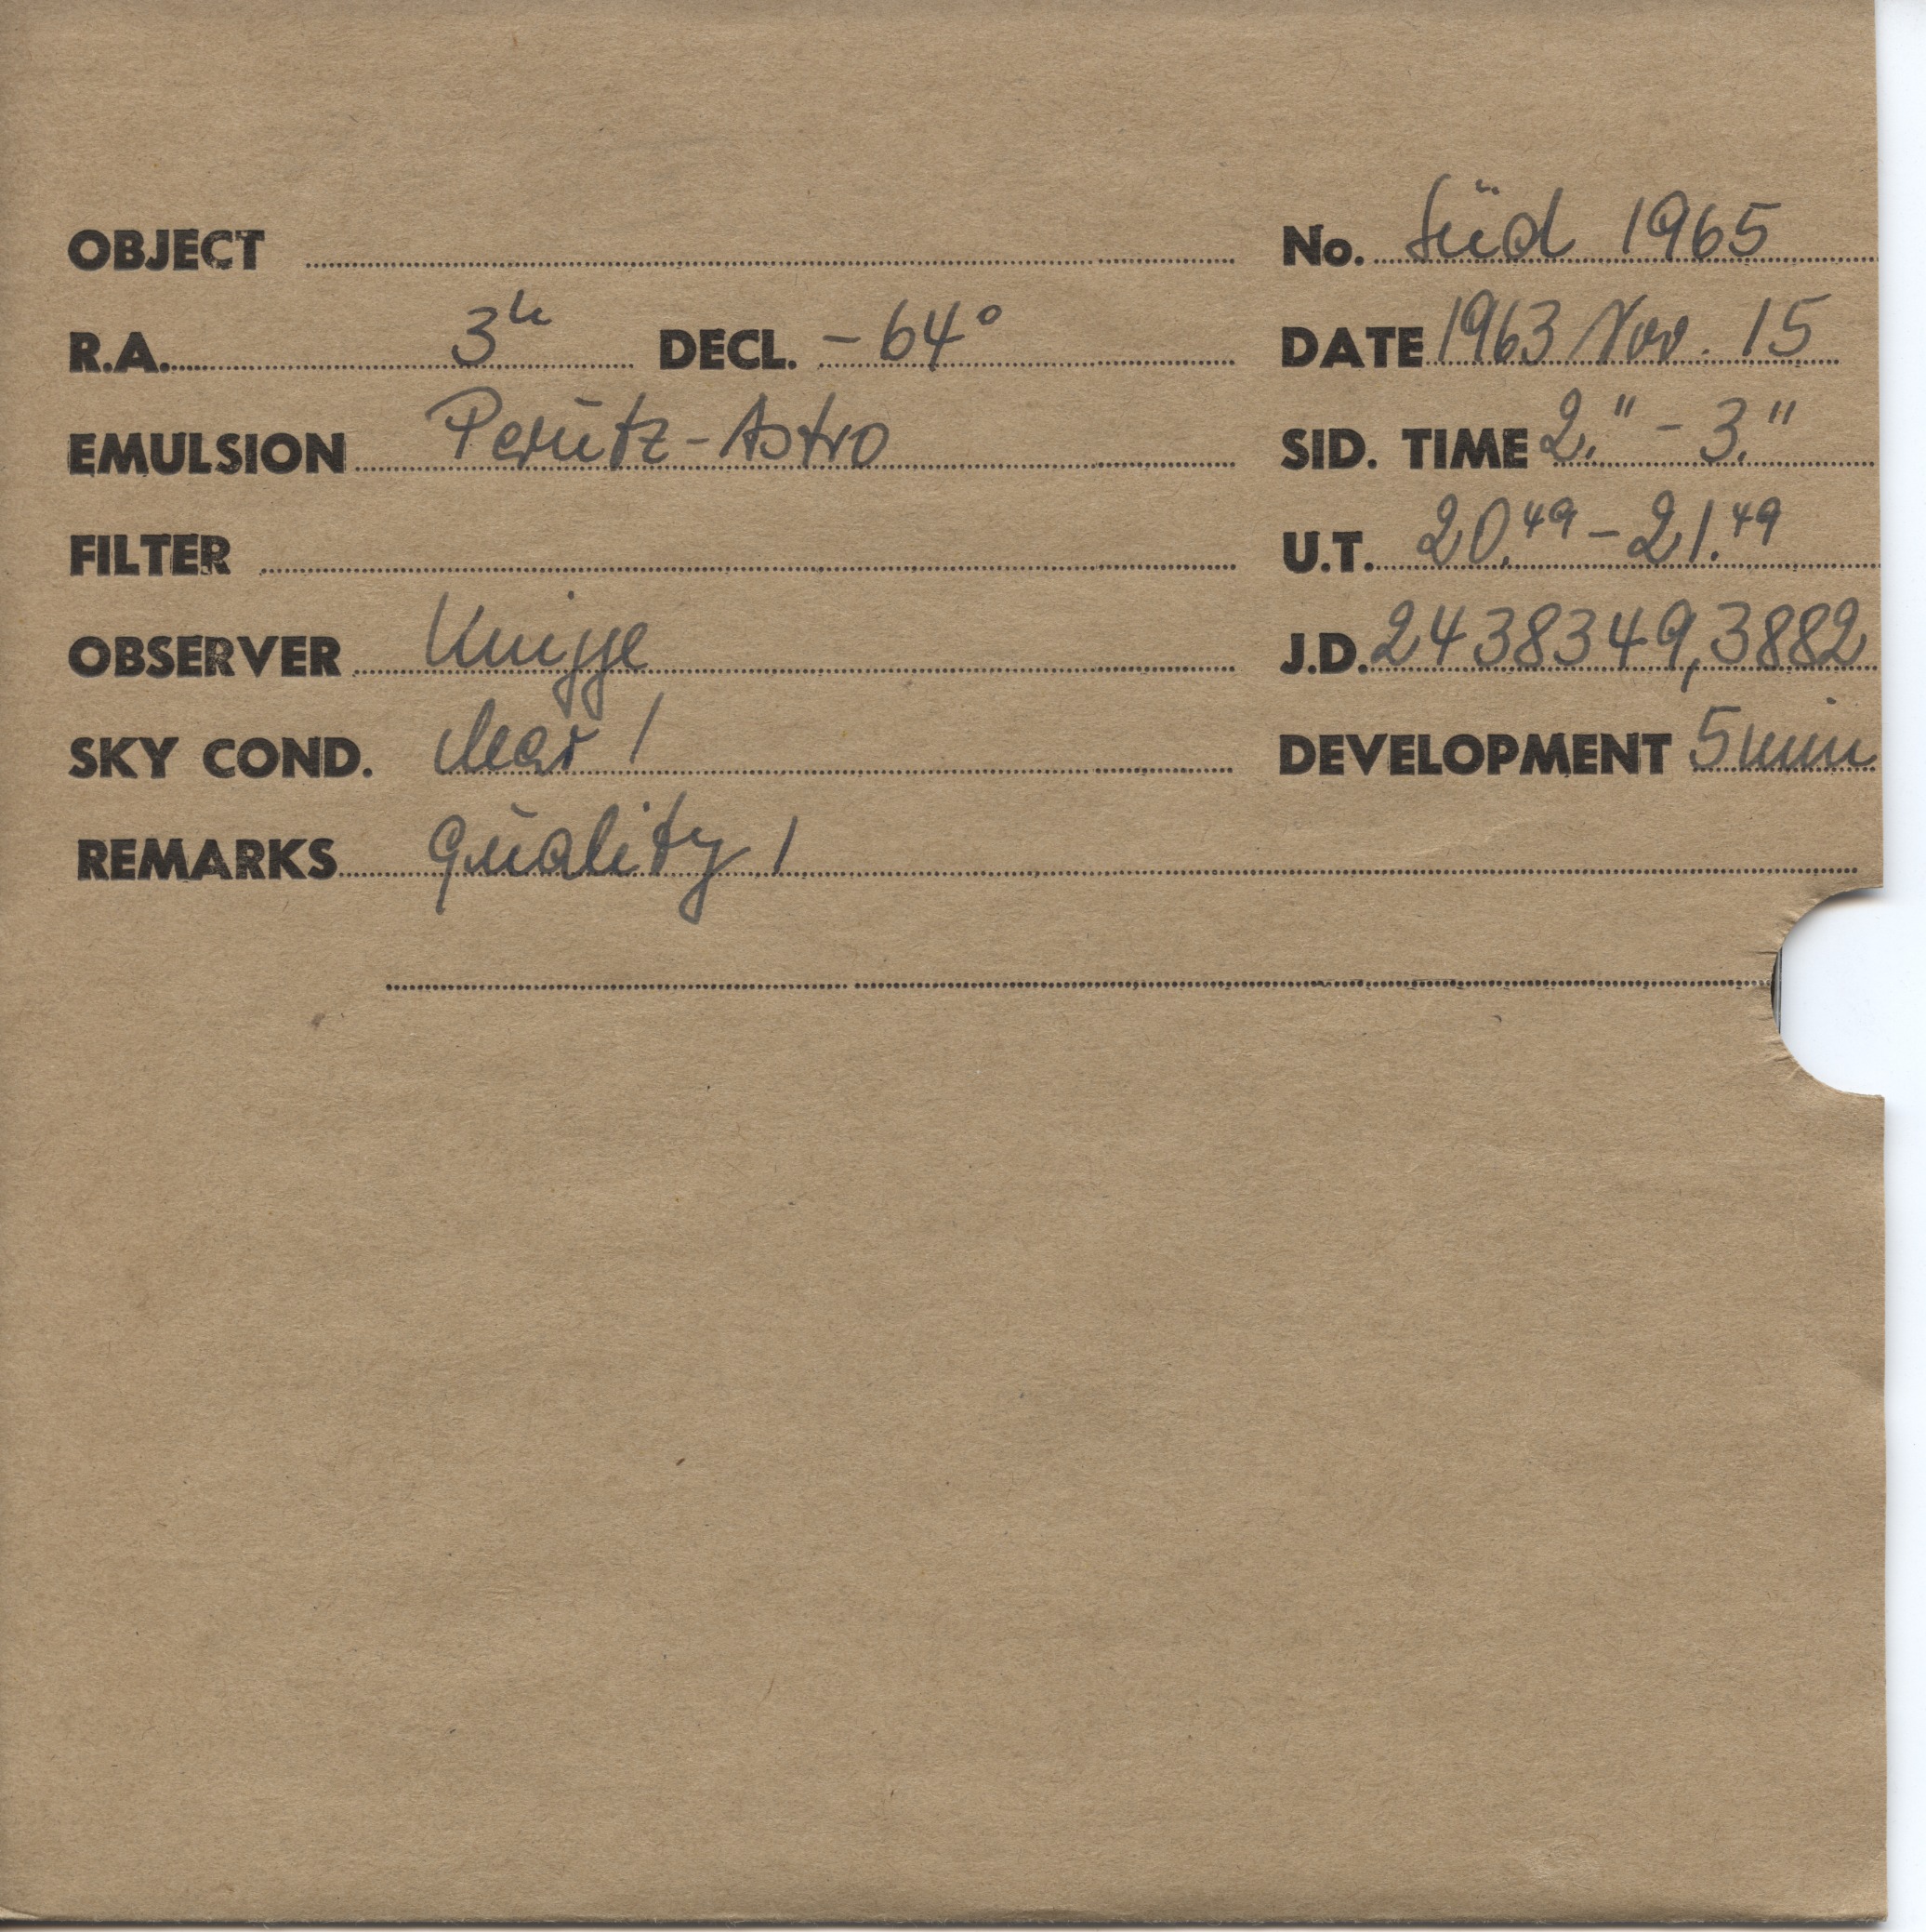 OBJECT No. Süd 1965
R.A. 3h DECL. -64° DATE 1963 Nov. 15
EMULSION Perutz-Astro SID. TIME 2.11 - 3.11
FILTER U.T. 20.49 - 21.49
OBSERVER Knigge J.D. 2438349,3882
SKY COND. clear 1 DEVELOPMENT 5 min
REMARKS quality 1